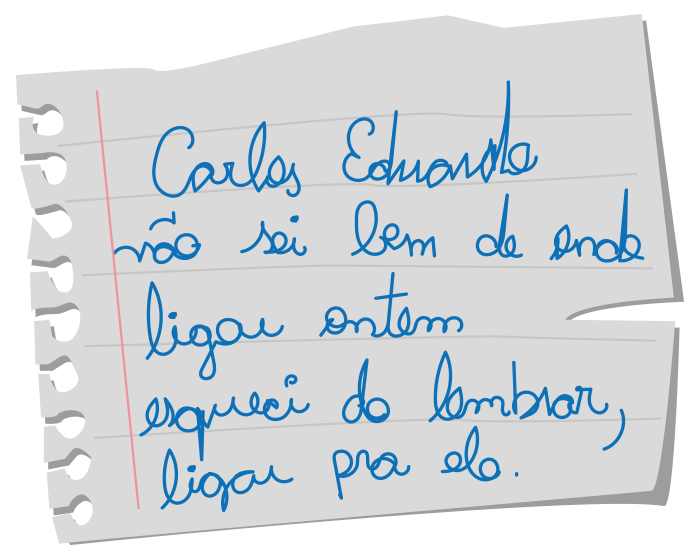 Carlos Eduardo
não sei bem de onde
ligou ontem
esqueci do lembrar,
ligar pra ela.